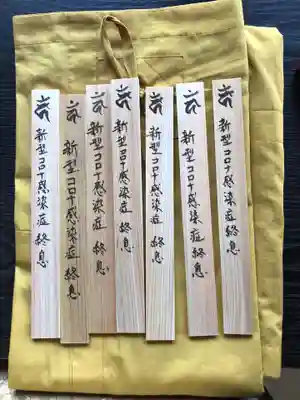 新型コロナ感染症終息
新型コロナ感染症終息
新型コロナ感染症終息
新型コロナ感染症終息
新型コロナ感染症終息
新型コロナ感染症終息
新型コロナ感染症終息